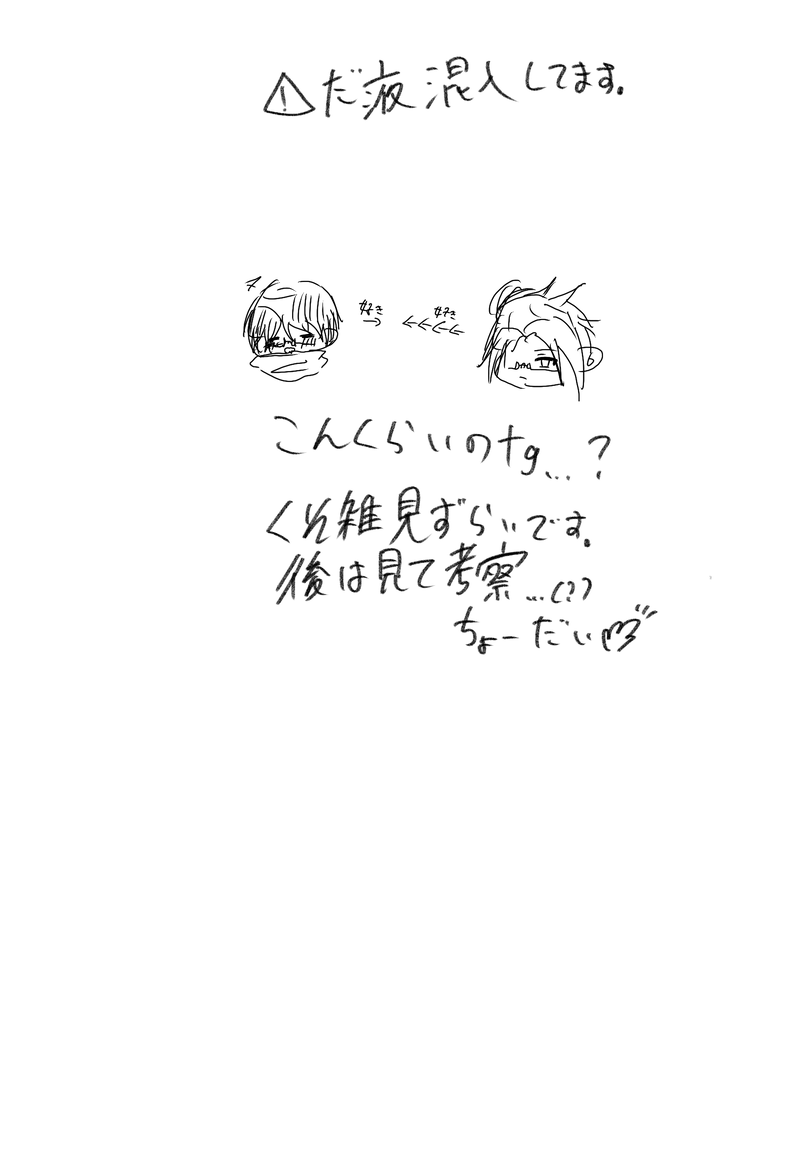 ⚠だ液混入してます。
好き
→
好き
←←←←
こんくらいのtg...?
くそ雑見ずらいです。
後は見て考察...(?)
ちょーだい♡